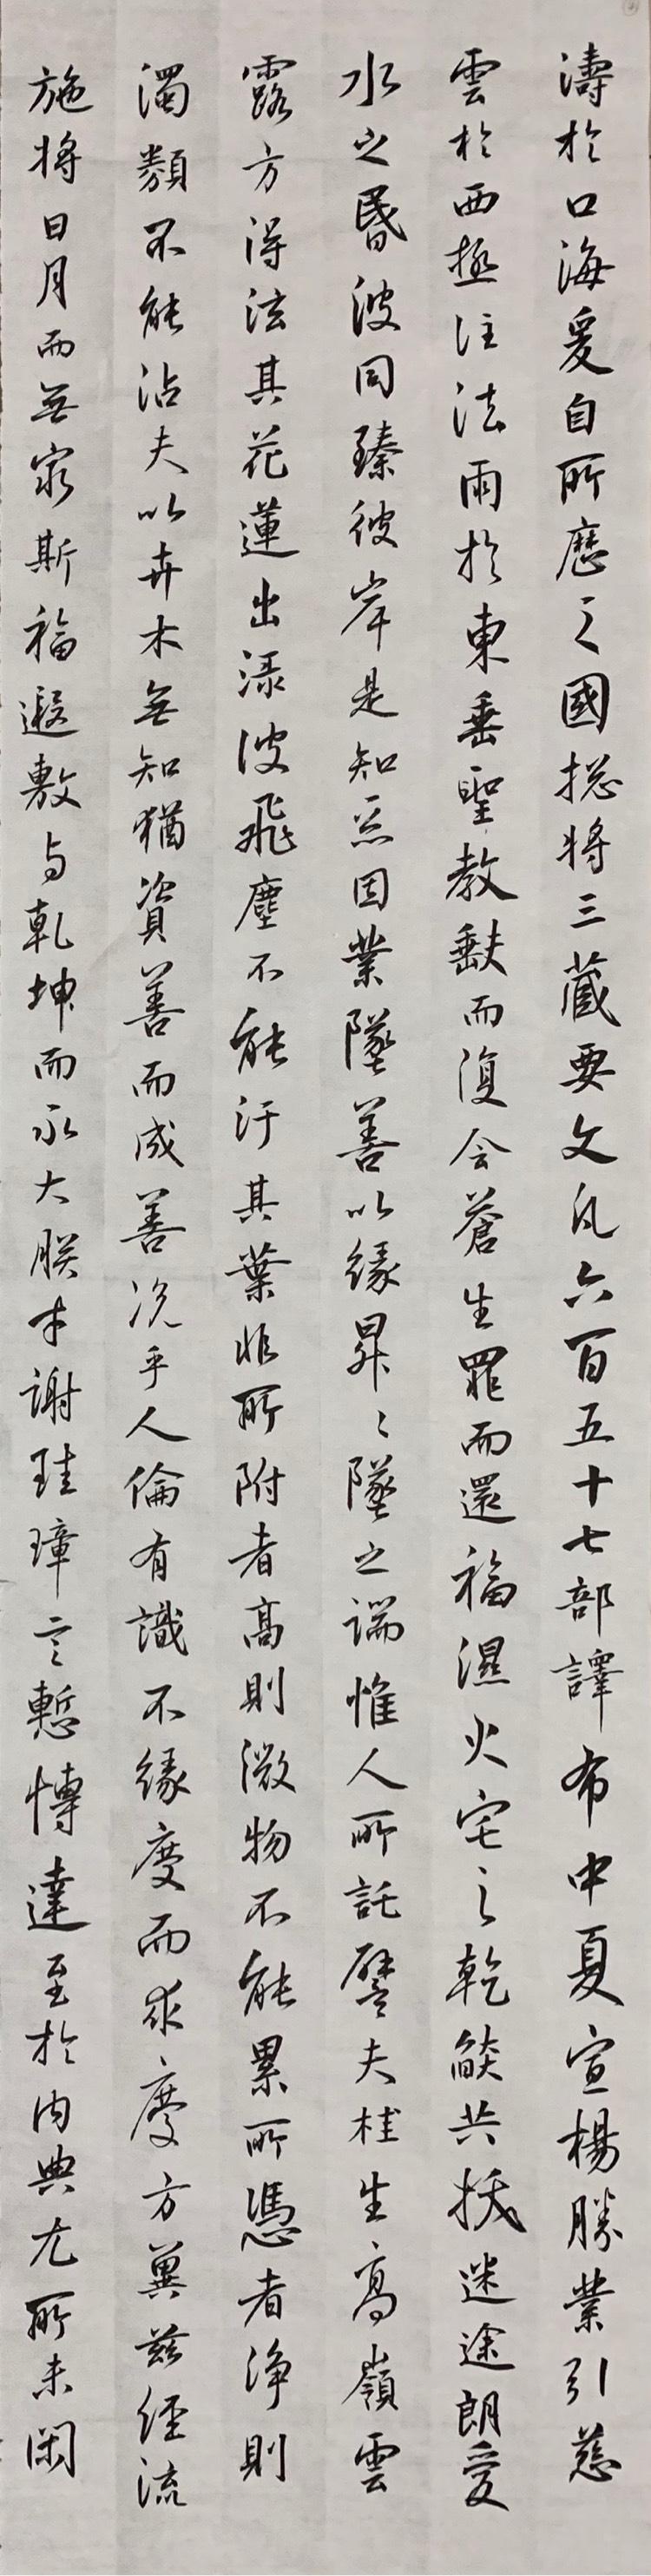 濤於口海爰自所歷之國揔將三藏要文凡六百五十七部譯布中夏宣楊勝業引慈
雲於西極注法雨於東垂聖教缺而復全蒼生罪而還福濕火宅之乾燄共拔迷途朗愛
水之昏波同臻彼岸是知惡因業墜善以緣昇昇墜之端惟人所託譬夫桂生高嶺雲
露方得泫其花蓮出淥波飛塵不能汙其葉非所附者高則微物不能累所憑者淨則
濁類不能沾夫以卉木無知猶資善而成善況乎人倫有識不緣慶而求慶方冀茲經流
施將日月而無窮斯福遐敷与乾坤而永大朕才謝珪璋言慙博達至於內典尤所未閑